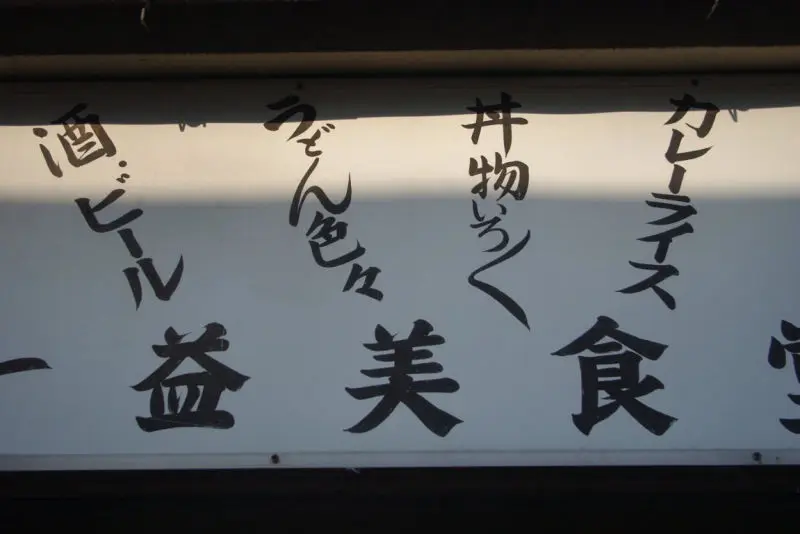 カレーライス
丼物いろ〱
うどん色々
酒・ビール
一益美食堂